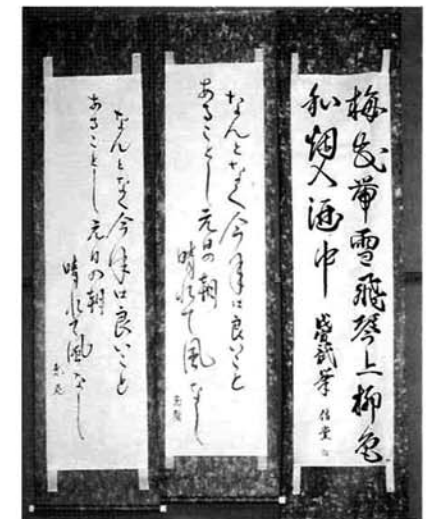 梅花帯雪飛琴上柳色
和烟入酒中
なんとなく今年は良いこと
あることし元日の朝
晴れて風なし
なんとなく今年は良いこと
あることし元日の朝
晴れて風なし